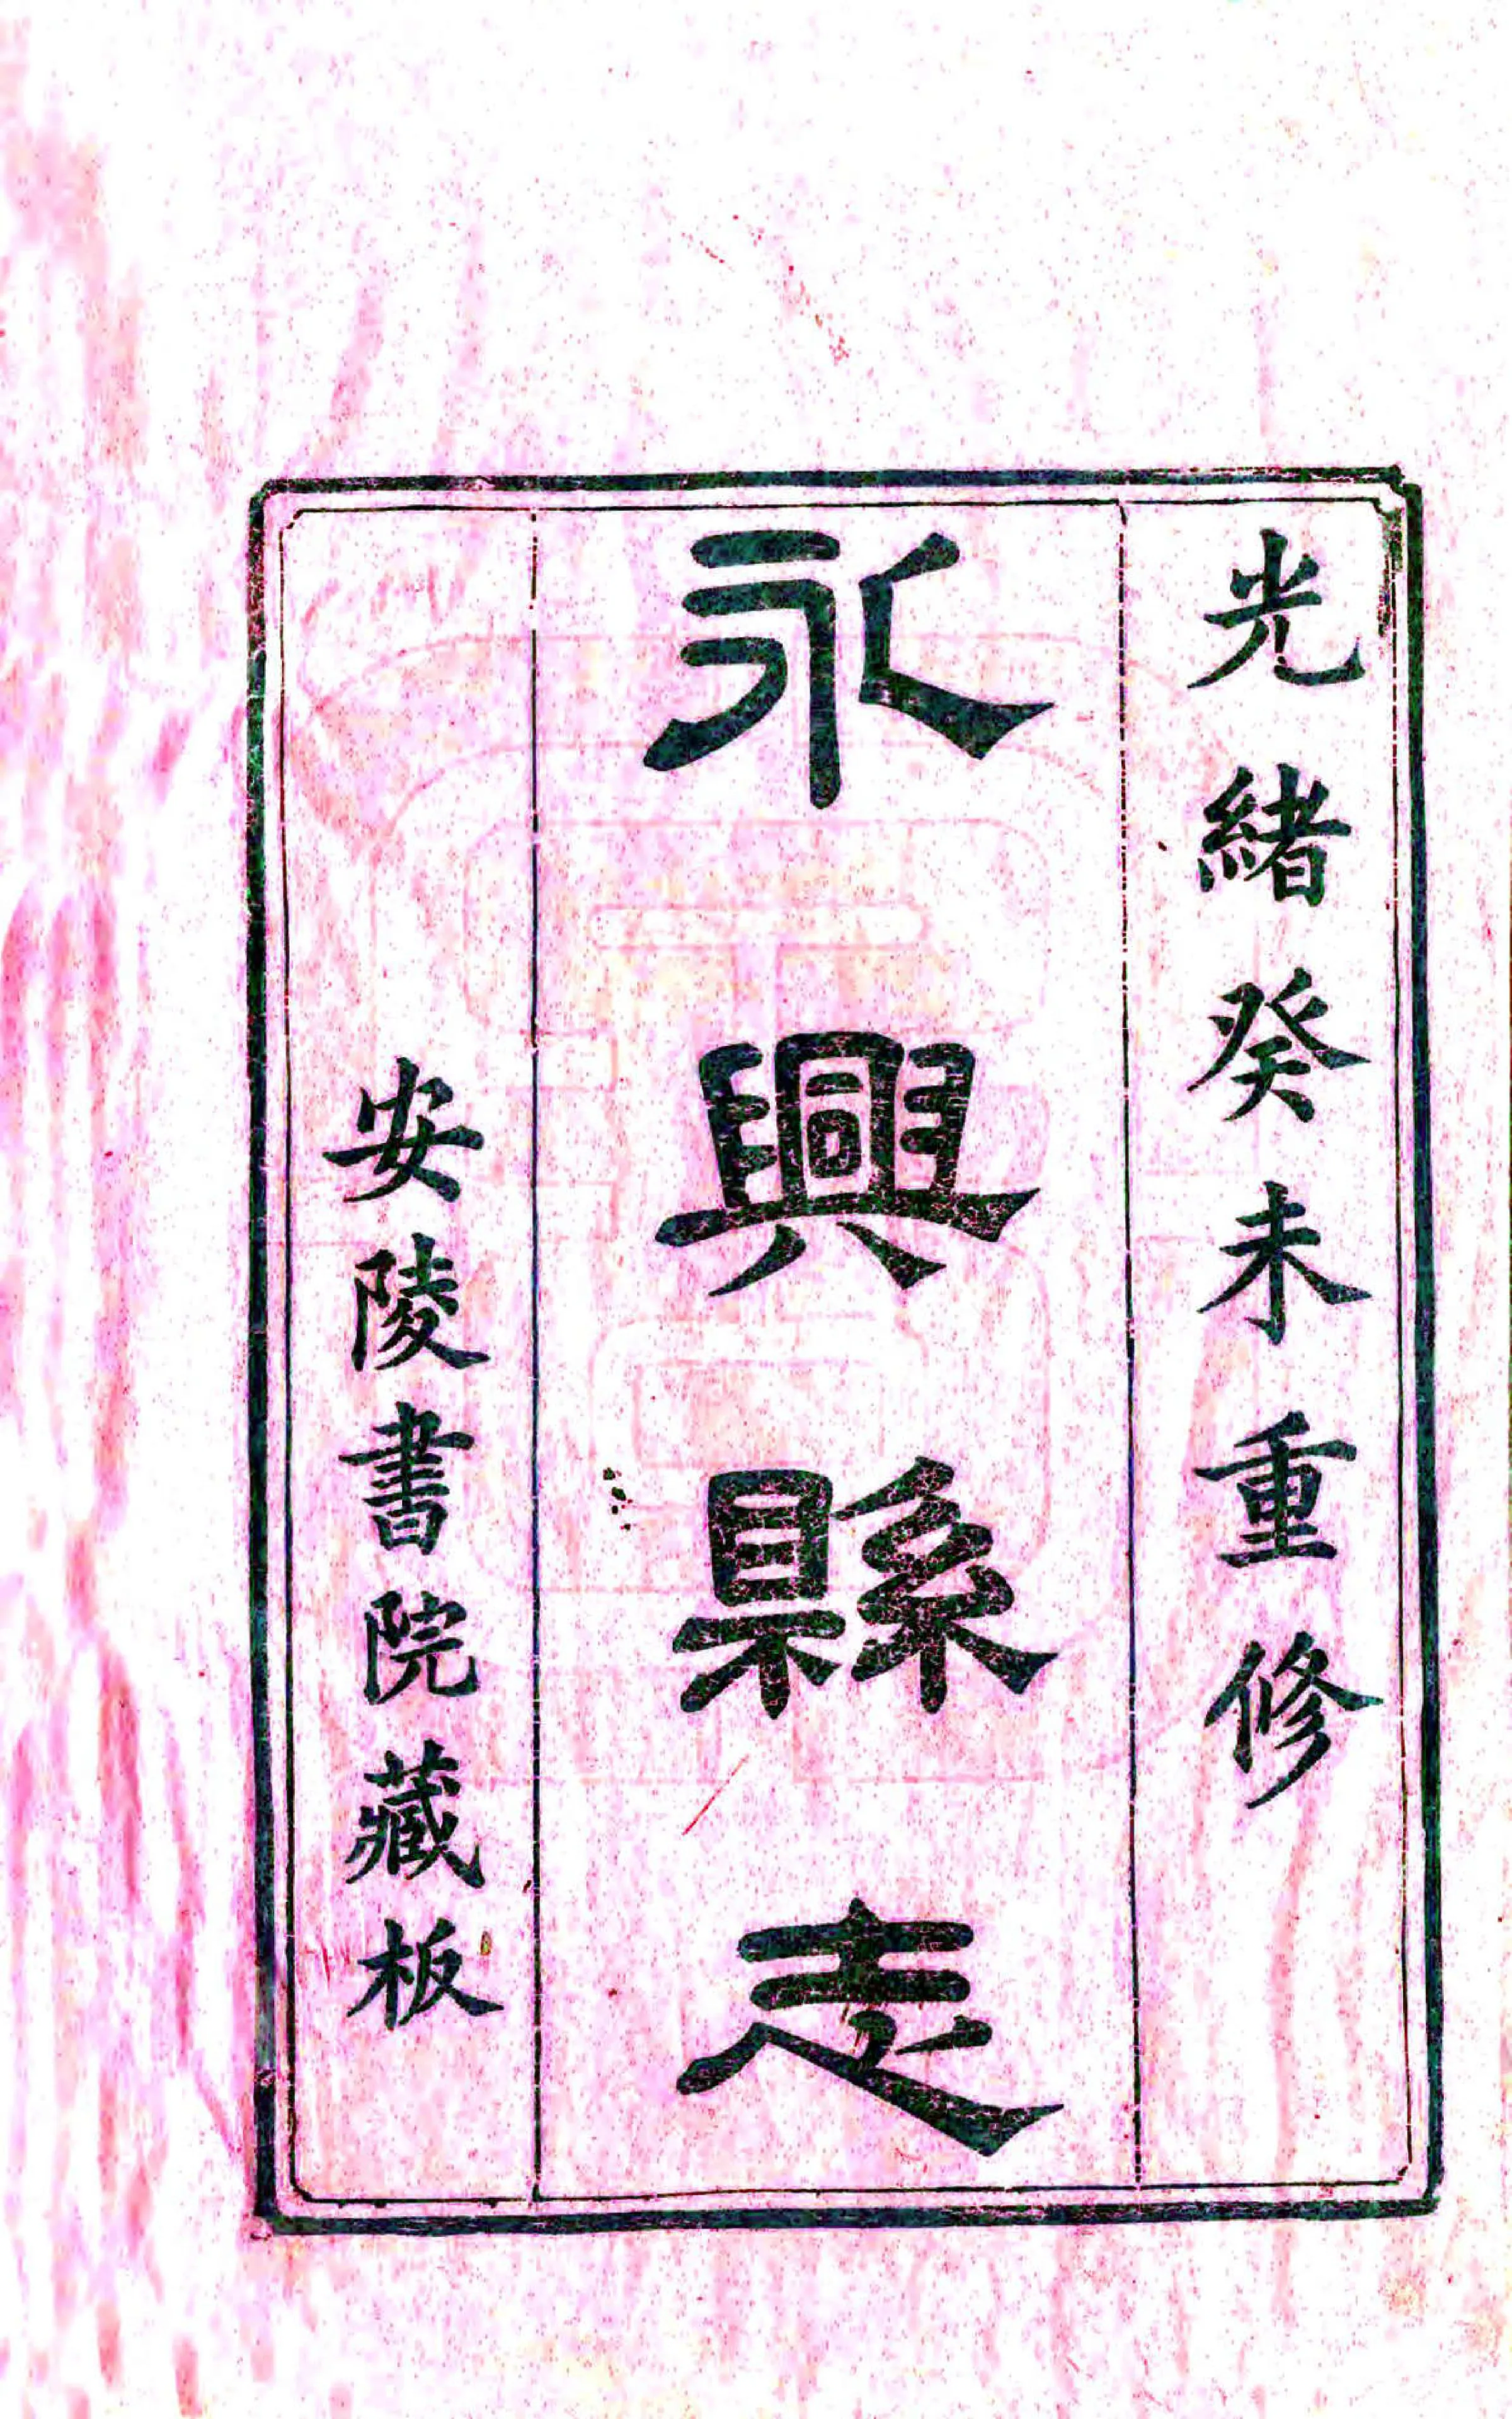 光緒癸未重修
永興縣志
安陵書院藏板